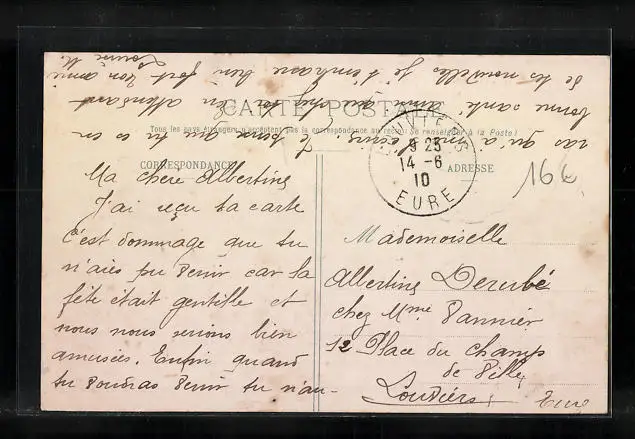 CARTE POSTALE
Tous les pays étrangers n'acceptent pas la correspondance au recto. (Se renseigner à la Poste)
CORRESPONDANCE
ADRESSE
9 25
14 - 6
10
EURE
Ma chère Albertine
J'ai reçu ta carte
C'est dommage que tu
n'aies pu venir car la
fête était gentille et
nous nous serions bien
amusées. Enfin quand
tu voudras venir tu n'au-
ras qu'à écrire. Je pense que tu es en
bonne santé ainsi que chez toi. En attendant
de tes nouvelles je t'embrasse bien fort ton amie
Mademoiselle
Albertine
chez Mme Vannier
12 Place du Champ
de Ville
Louviers
Eure